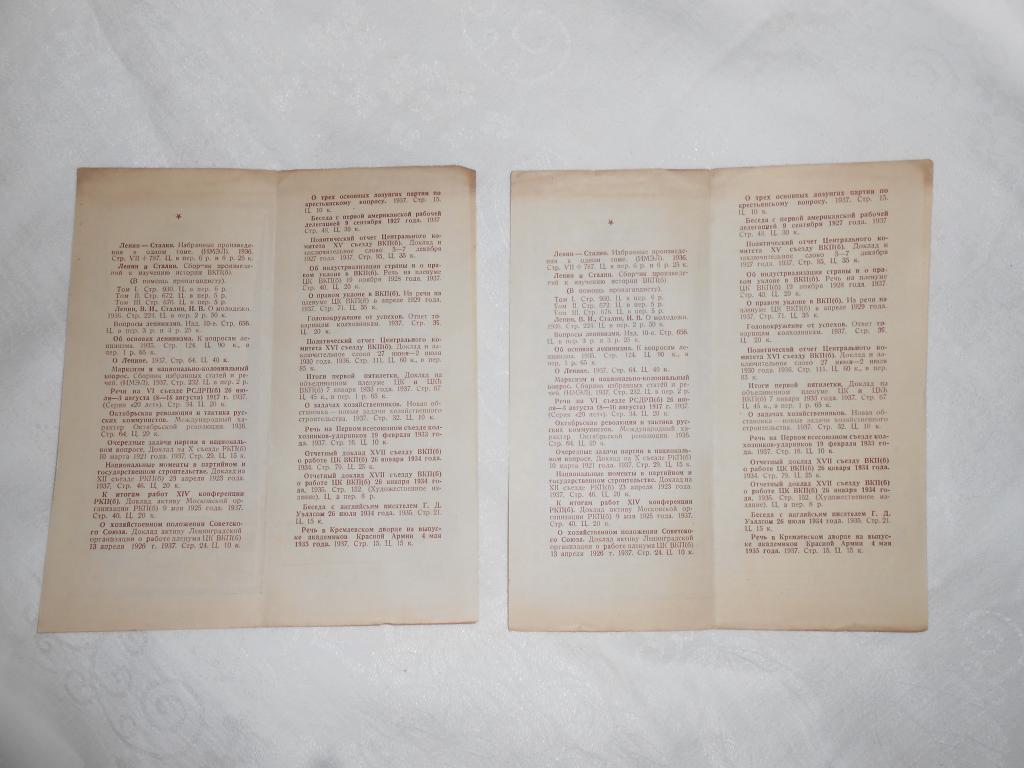 Ленин — Сталин. Избранные произведе-
ния в одном томе. (ИМЭЛ). 1936.
Стр. VII + 787. Ц. в пер. 6 р. и 6 р. 25 к.
Ленин и Сталин. Сборник произведе-
ний к изучению истории ВКП(б).
(В помощь пропагандисту).
Том I. Стр. 930. Ц. в пер. 6 р.
Том II. Стр. 672. Ц. в пер. 5 р.
Том III. Стр. 676. Ц. в пер. 5 р.
Ленин, В. И., Сталин, И. В. О молодежи.
1936. Стр. 223. Ц. в пер. 2 р. 50 к.
Вопросы ленинизма. Изд. 10-е. Стр. 656.
Ц. в пер. 3 р. и 3 р. 25 к.
Об основах ленинизма. К вопросам ле-
нинизма. 1935. Стр. 124. Ц. 90 к., в
пер. 1 р. 65 к.
О Ленине. 1937. Стр. 64. Ц. 40 к.
Марксизм и национально-колониальный
вопрос. Сборник избранных статей и
речей. (ИМЭЛ). 1937. Стр. 232. Ц. в пер. 2 р.
Речи на VI съезде РСДРП(б) 26 ию-
ля—3 августа (8—16 августа) 1917 г. 1937.
(Серия «20 лет»). Стр. 34. Ц. 20 к.
Октябрьская революция и тактика рус-
ских коммунистов. Международный ха-
рактер Октябрьской революции. 1936.
Стр. 64. Ц. 20 к.
Очередные задачи партии в националь-
ном вопросе. Доклад на X съезде РКП(б)
10 марта 1921 года. 1937. Стр. 29. Ц. 15 к.
Национальные моменты в партийном и
государственном строительстве. Доклад на
XII съезде РКП(б) 23 апреля 1923 года.
1937. Стр. 46. Ц. 20 к.
К итогам работ XIV конференции
РКП(б). Доклад активу Московской ор-
ганизации РКП(б) 9 мая 1925 года. 1937.
Стр. 40. Ц. 20 к.
О хозяйственном положении Советско-
го Союза. Доклад активу Ленинградской
организации о работе пленума ЦК ВКП(б)
13 апреля 1926 г. 1937. Стр. 24. Ц. 10 к.
О трех основных лозунгах партии по
крестьянскому вопросу. 1937. Стр. 15.
Ц. 10 к.
Беседа с первой американской рабочей
делегацией 9 сентября 1927 года. 1937.
Стр. 48. Ц. 30 к.
Политический отчет Центрального ко-
митета XV съезду ВКП(б). Доклад и
заключительное слово 3—7 декабря
1927 года. 1937. Стр. 95. Ц. 35 к.
Об индустриализации страны и о пра-
вом уклоне в ВКП(б). Речь на пленуме
ЦК ВКП(б) 19 ноября 1928 года. 1937.
Стр. 40. Ц. 20 к.
О правом уклоне в ВКП(б). Из речи на
пленуме ЦК ВКП(б) в апреле 1929 года.
1937. Стр. 71. Ц. 35 к.
Головокружение от успехов. Ответ то-
варищам колхозникам. 1937. Стр. 36.
Ц. 20 к.
Политический отчет Центрального Ко-
митета XVI съезду ВКП(б). Доклад и за-
ключительное слово 27 июня—2 июля
1930 года. 1936. Стр. 111. Ц. 60 к., в пер.
85 к.
Итоги первой пятилетки. Доклад на
объединенном пленуме ЦК и ЦКК
ВКП(б) 7 января 1933 года. 1937. Стр. 67
Ц. 45 к., в пер. 1 р. 65 к.
О задачах хозяйственников. Новая об-
становка — новые задачи хозяйственного
строительства. 1937. Стр. 32. Ц. 10 к.
Речь на Первом всесоюзном съезде кол-
хозников-ударников 19 февраля 1933 го-
да. 1937. Стр. 16. Ц. 10 к.
Отчетный доклад XVII съезду ВКП(б)
о работе ЦК ВКП(б) 26 января 1934 года.
1937. Стр. 79. Ц. 25 к.
Отчетный доклад XVII съезду ВКП(б)
о работе ЦК ВКП(б) 26 января 1934 го-
да. 1935. Стр. 152 (Художественное изда-
ние). Ц. в пер. 8 р.
Беседа с английским писателем Г. Д.
Уэллсом 26 июля 1934 года. 1935. Стр. 21.
Ц. 15 к.
Речь в Кремлевском дворце на выпус-
ке академиков Красной Армии 4 мая
1935 года. 1937. Стр. 15. Ц. 15 к.
Ленин — Сталин. Избранные произведе-
ния в одном томе. (ИМЭЛ). 1936.
Стр. VII + 787. Ц. в пер. 6 р. и 6 р. 25 к.
Ленин и Сталин. Сборник произведе-
ний к изучению истории ВКП(б)
(В помощь пропагандисту).
Том I. Стр. 930. Ц. в пер. 6 р.
Том II. Стр. 672. Ц. в пер. 5 р.
Том III. Стр. 676. Ц. в пер. 5 р.
Ленин, В. И., Сталин, И. В. О молодежи.
1936. Стр. 223. Ц. в пер. 2 р. 50 к.
Вопросы ленинизма. Изд. 10-е. Стр. 656.
Ц. в пер. 3 р. и 3 р. 25 к.
Об основах ленинизма. К вопросам ле-
нинизма. 1935. Стр. 124. Ц. 90 к., в
пер. 1 р. 65 к.
О Ленине. 1937. Стр. 64. Ц. 40 к.
Марксизм и национально-колониальный
вопрос. Сборник избранных статей и ре-
чей. (ИМЭЛ). 1937. Стр. 232. Ц. в пер. 2 р.
Речи на VI съезде РСДРП(б) 26 ию-
ля—3 августа (8—16 августа) 1917 г. 1937.
(Серия «20 лет»). Стр. 34. Ц. 20 к.
Октябрьская революция и тактика рус-
ских коммунистов. Международный ха-
рактер Октябрьской революции. 1936.
Стр. 64. Ц. 20 к.
Очередные задачи партии в националь-
ном вопросе. Доклад на X съезде РКП(б)
10 марта 1921 года. 1937. Стр. 29. Ц. 15 к.
Национальные моменты в партийном и
государственном строительстве. Доклад на
XII съезде РКП(б) 23 апреля 1923 года.
1937. Стр. 46. Ц. 20 к.
К итогам работ XIV конференции
РКП(б). Доклад активу Московской ор-
ганизации РКП(б) 9 мая 1925 года. 1937.
Стр. 40. Ц. 20 к.
О хозяйственном положении Советско-
го Союза. Доклад активу Ленинградской
организации о работе пленума ЦК ВКП(б)
13 апреля 1926 г. 1937. Стр. 24. Ц. 10 к.
О трех основных лозунгах партии по
крестьянскому вопросу. 1937. Стр. 15.
Ц. 10 к.
Беседа с первой американской рабочей
делегацией 9 сентября 1927 года. 1937
Стр. 48. Ц. 30 к.
Политический отчет Центрального ко-
митета XV съезду ВКП(б). Доклад и
заключительное слово 3—7 декабря
1927 года. 1937. Стр. 95. Ц. 35 к.
Об индустриализации страны и о пра-
вом уклоне в ВКП(б). Речь на пленуме
ЦК ВКП(б) 19 ноября 1928 года. 1937.
Стр. 40. Ц. 20 к.
О правом уклоне в ВКП(б). Из речи на
пленуме ЦК ВКП(б) в апреле 1929 года.
1937. Стр. 71. Ц. 35 к.
Головокружение от успехов. Ответ то-
варищам колхозникам. 1937. Стр. 36.
Ц. 20 к.
Политический отчет Центрального Ко-
митета XVI съезду ВКП(б). Доклад и за-
ключительное слово 27 июня—2 июля
1930 года. 1936. Стр. 111. Ц. 60 к., в пер.
85 к.
Итоги первой пятилетки. Доклад на
объединенном пленуме ЦК и ЦКК
ВКП(б) 7 января 1933 года. 1937. Стр. 67
Ц. 45 к., в пер. 1 р. 65 к.
О задачах хозяйственников. Новая об-
становка — новые задачи хозяйственного
строительства. 1937. Стр. 32. Ц. 10 к.
Речь на Первом всесоюзном съезде кол-
хозников-ударников 19 февраля 1933 го-
да. 1937. Стр. 16. Ц. 10 к.
Отчетный доклад XVII съезду ВКП(б)
о работе ЦК ВКП(б) 26 января 1934 года.
1937. Стр. 79. Ц. 25 к.
Отчетный доклад XVII съезду ВКП(б)
о работе ЦК ВКП(б) 26 января 1934 го-
да. 1935. Стр. 152 (Художественное изда-
ние). Ц. в пер. 8 р.
Беседа с английским писателем Г. Д.
Уэллсом 26 июля 1934 года. 1935. Стр. 21.
Ц. 15 к.
Речь в Кремлевском дворце на выпус-
ке академиков Красной Армии 4 мая
1935 года. 1937. Стр. 15. Ц. 15 к.